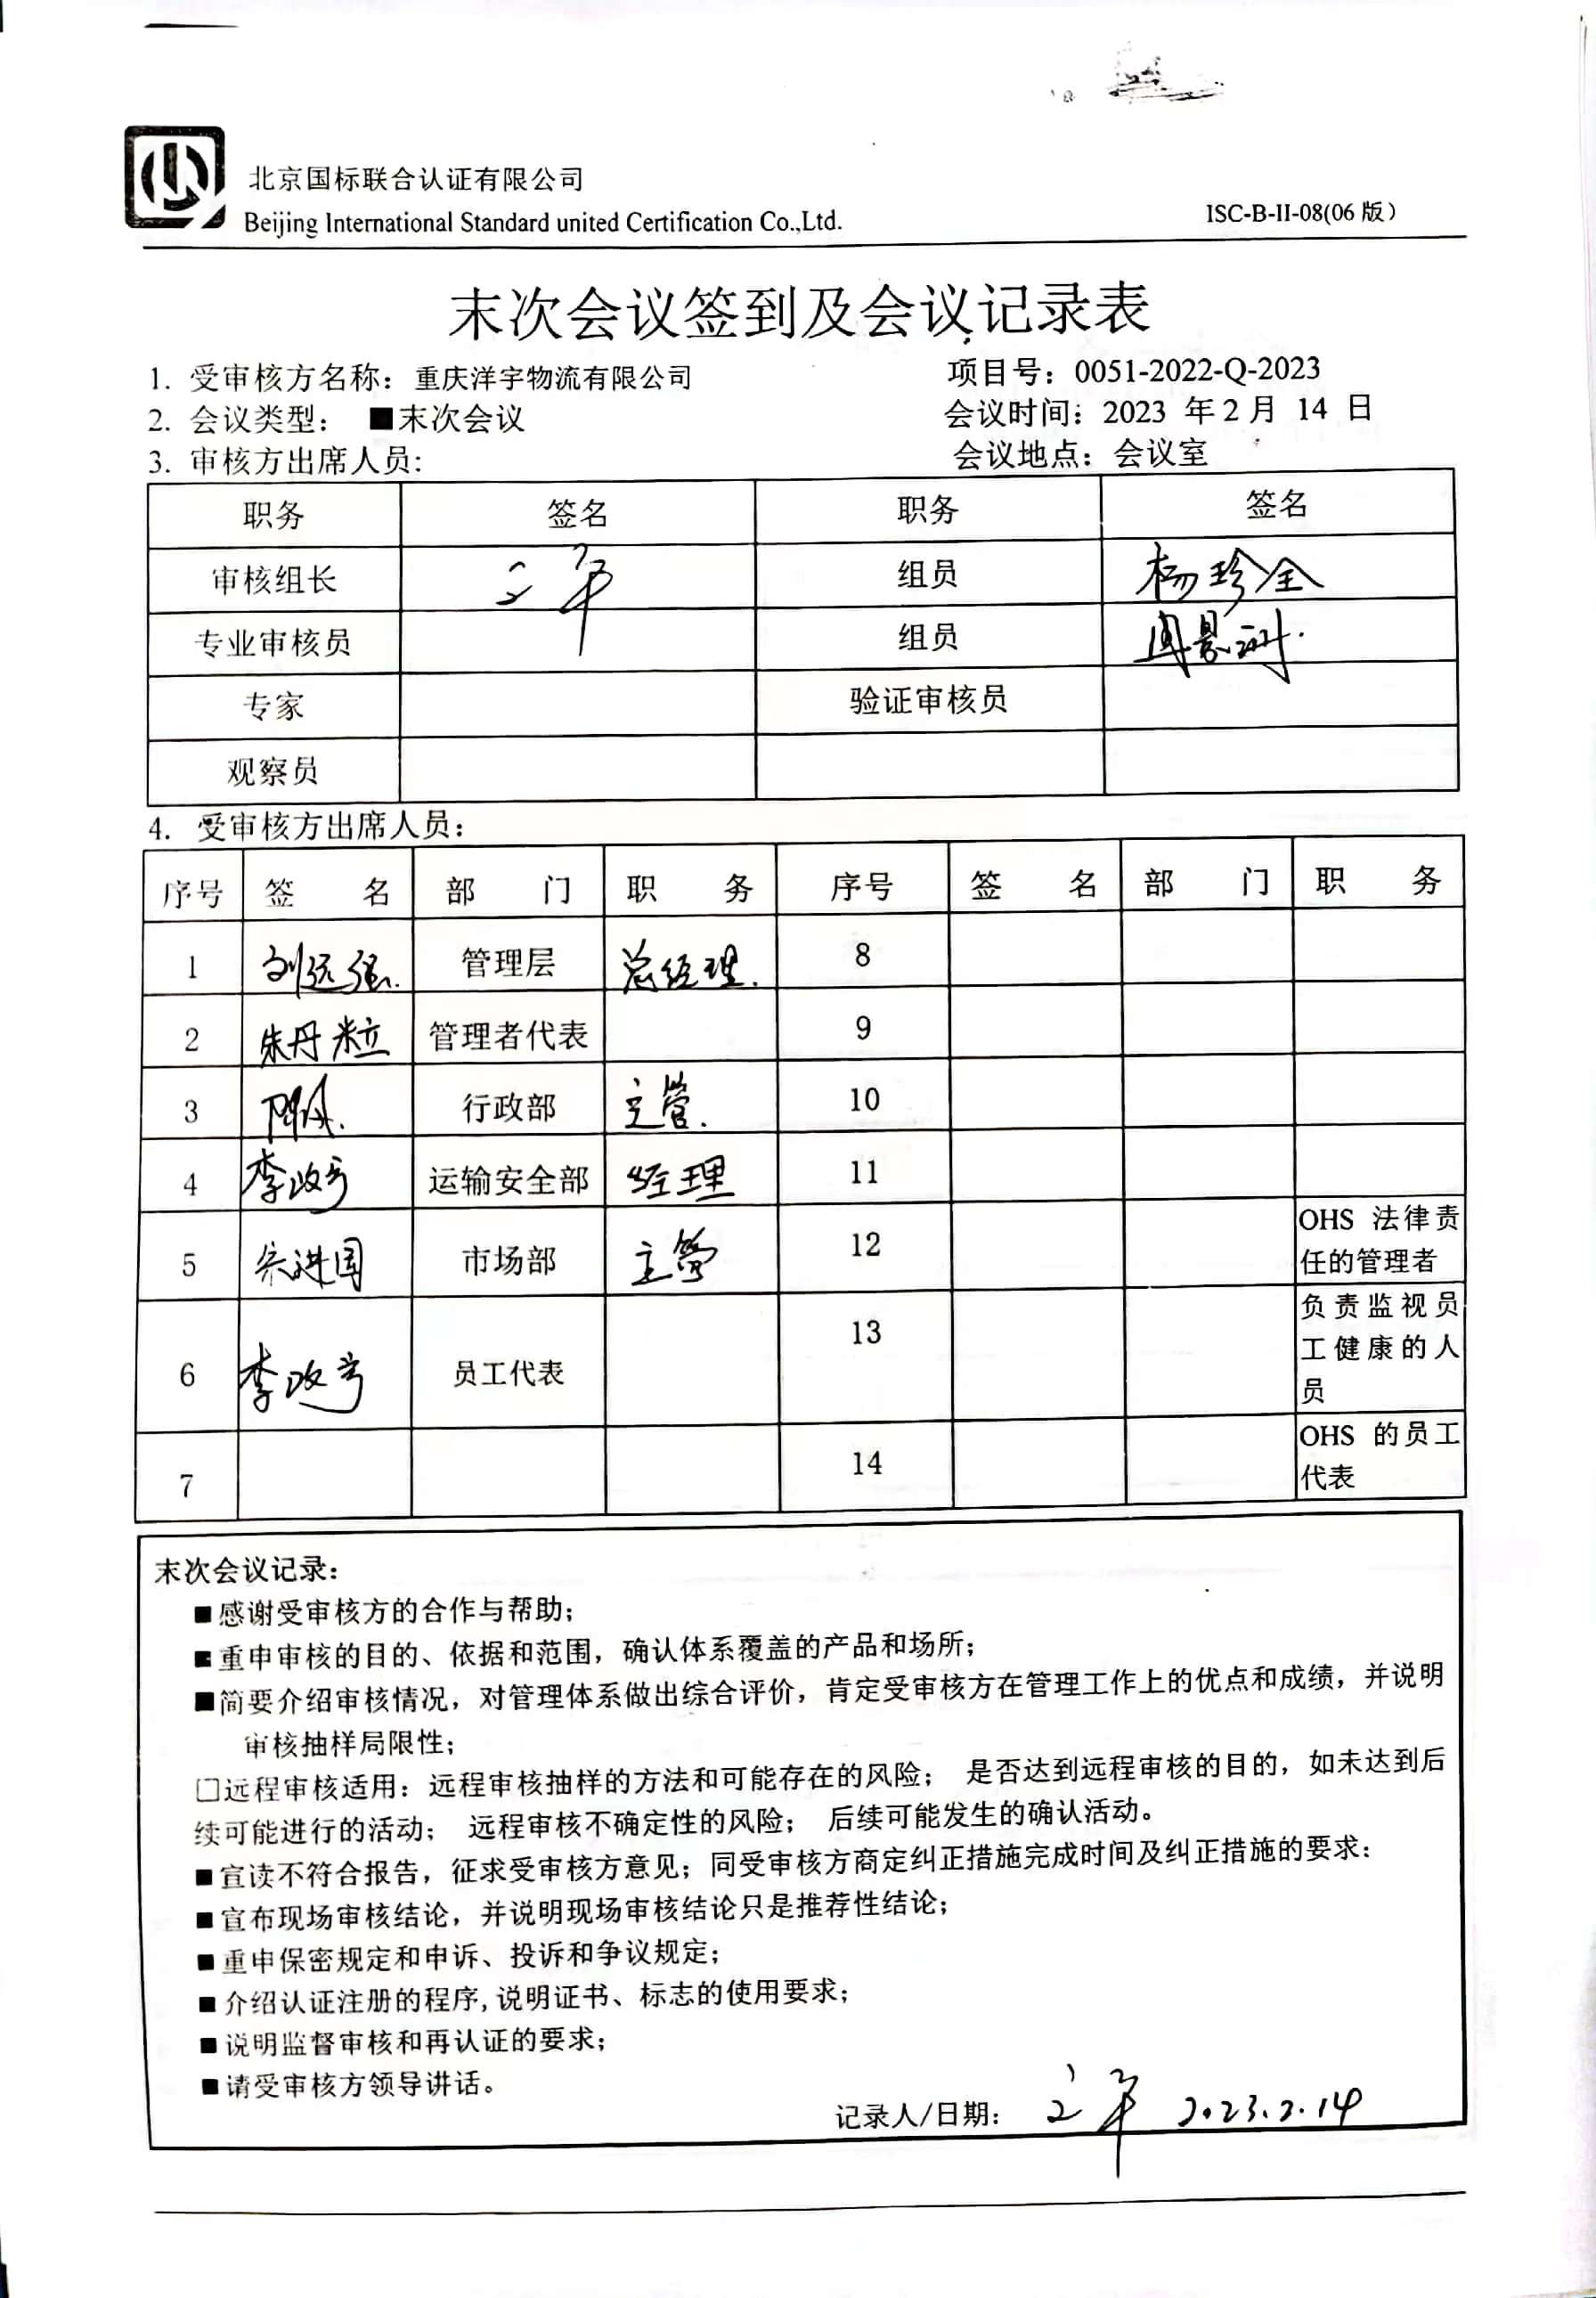 北京国标联合认证有限公司
Beijing International Standard united Certification Co.,Ltd.
ISC-B-II-08(06 版)
末次会议签到及会议记录表
1. 受审核方名称：重庆洋宇物流有限公司 项目号：0051-2022-Q-2023
2. 会议类型： ■末次会议 会议时间：2023 年2月 14 日
3. 审核方出席人员: 会议地点：会议室
职务 签名 职务 签名
审核组长 组员 杨珍全
专业审核员 组员
专家 验证审核员
观察员
4. 受审核方出席人员：
序号 签 名 部 门 职 务 序号 签 名 部 门 职 务
1 刘远强 管理层 总经理. 8
2 朱丹粒 管理者代表 9
3 行政部 主管. 10
4 李政 运输安全部 经理 11
5 宋进国 市场部 主管 12 OHS 法律责任的管理者
6 李政 员工代表 13 负责监视员工健康的人员
7 14 OHS 的员工代表
末次会议记录：
■感谢受审核方的合作与帮助；
■重申审核的目的、依据和范围，确认体系覆盖的产品和场所；
■简要介绍审核情况，对管理体系做出综合评价，肯定受审核方在管理工作上的优点和成绩，并说明
审核抽样局限性；
□远程审核适用：远程审核抽样的方法和可能存在的风险； 是否达到远程审核的目的，如未达到后
续可能进行的活动； 远程审核不确定性的风险； 后续可能发生的确认活动。
■宣读不符合报告，征求受审核方意见；同受审核方商定纠正措施完成时间及纠正措施的要求：
■宣布现场审核结论，并说明现场审核结论只是推荐性结论；
■重申保密规定和申诉、投诉和争议规定；
■介绍认证注册的程序,说明证书、标志的使用要求；
■说明监督审核和再认证的要求；
■请受审核方领导讲话。
记录人/日期： 2023.2.14